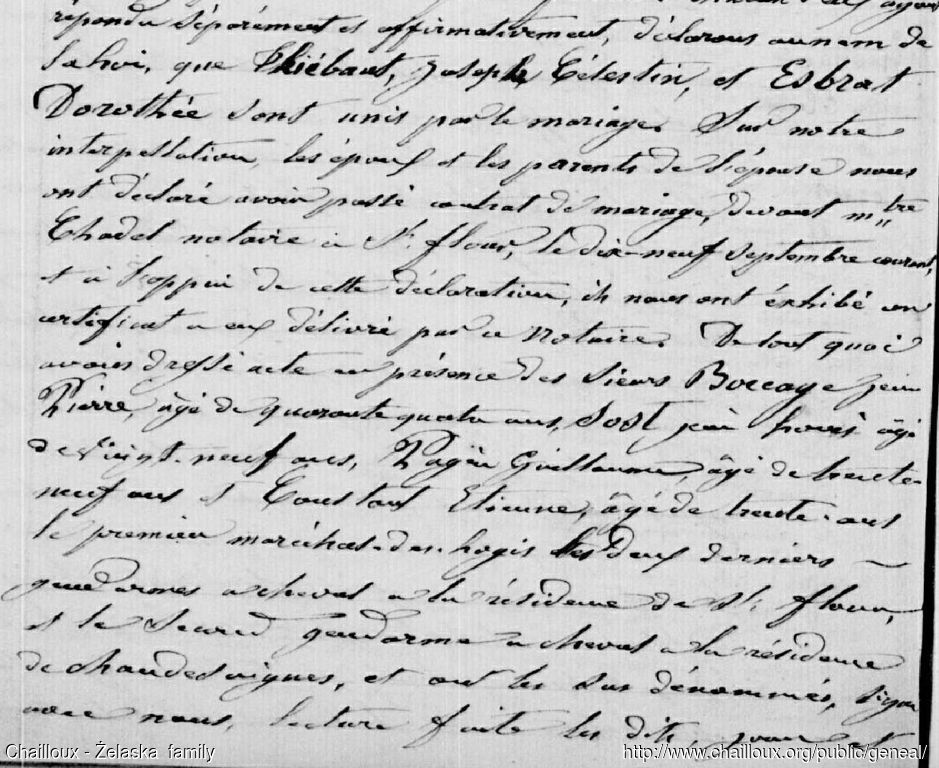 répondu séparément et affirmativement, déclarons au nom de
la loi, que Thiébaut, Joseph Célestin, et Esbrat
Dorothée sont unis par le mariage. Sur notre
interpellation, les époux et les parents de l'épouse nous
ont déclaré avoir passé contrat de mariage, devant mtre
Chadel notaire à St. flour, le dix-neuf septembre courant,
et à l'appui de cette déclaration, ils nous ont exhibé un
certificat a eux délivré par ce Notaire. De tout quoi
avons dressé acte en présence des sieurs Boccaye jean
Pierre, âgé de quarante quatre ans, Sost jean louis âgé
de vingt-neuf ans, Pagès Guillaume, âgé de trente-
neuf ans et Constant Etienne, âgé de trente ans
le premier maréchal-des-logis les deux derniers
gendarmes a cheval a la résidence de St. flour,
et le second gendarme a cheval a la résidence
de chaudesaigues, et ont les sus dénommés, signé
avec nous, lecture faite les dits, jour et
Chailloux - Żelaska family
http://www.chailloux.org/public/geneal/